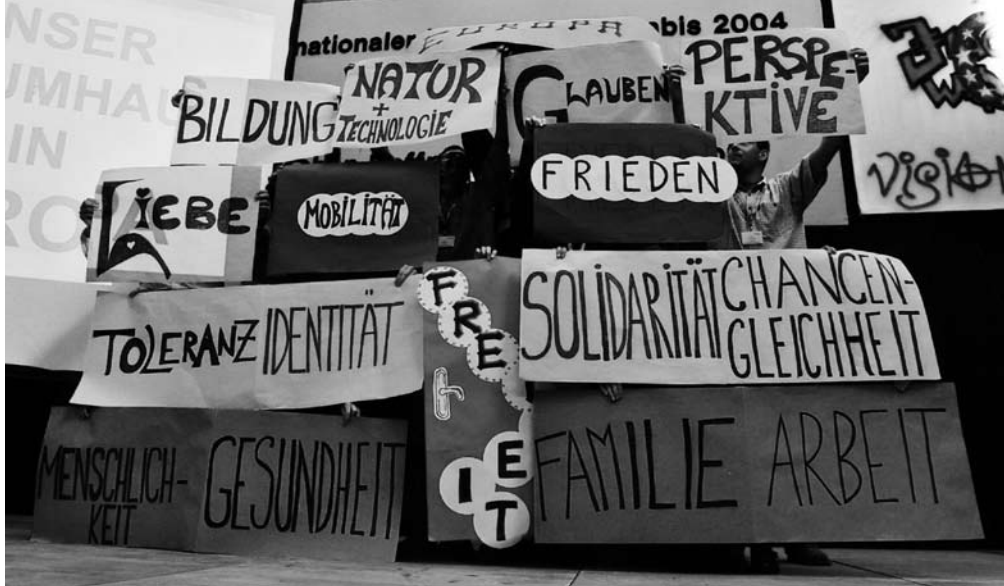 NSER
UMHAUS
IN
EUROPA
nationaler
bis 2004
BILDUNG
NATUR
+
TECHNOLOGIE
GLAUBEN
PERSPE-
KTIVE
LiEBE
MOBILITÄT
FRIEDEN
TOLERANZ IDENTITÄT
F
R
E
I E
T
SOLIDARITÄT
CHANCEN-
GLEICHHEIT
MENSCHLICH-
KEIT
GESUNDHEIT
FAMILIE ARBEIT